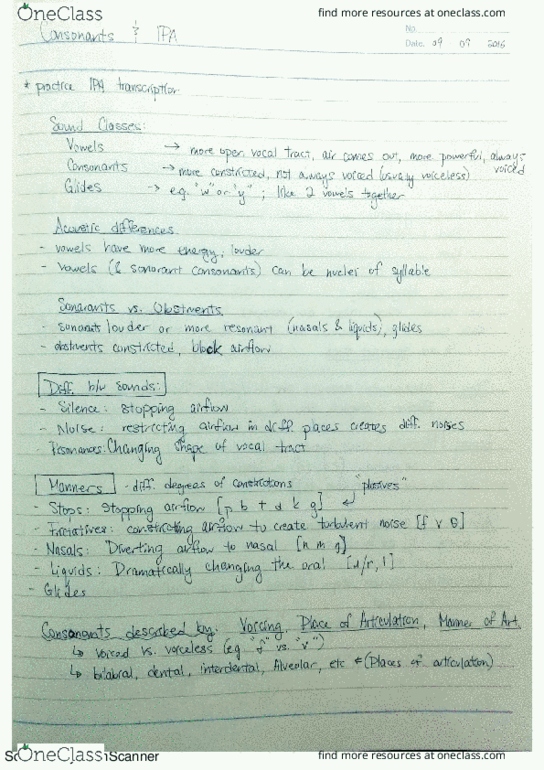 OneClass find more resources at oneclass.com
Consonants & IPA
No.
Date. 09 09 2015
* practice IPA transcription
Sound Classes:
Vowels → more open vocal tract, air comes out, more powerful, always voiced
Consonants → more constricted, not always voiced (usually voiceless)
Glides → e.g. "w" or "y" ; like 2 vowels together
Acoustic differences
- vowels have more energy, louder
- vowels (& sonorant consonants) can be nuclei of syllable
Sonorants vs. Obstruents
- sonorants louder or more resonant (nasals & liquids), glides
- obstruents constricted, block airflow
Diff. b/w sounds:
- Silence: stopping airflow
- Noise: restricting airflow in diff. places creates diff. noises
Resonances: Changing shape of vocal tract
Manners - diff. degrees of constrictions
"plosives"
- Stops: stopping airflow [p b t d k g]
- Fricatives: constricting airflow to create turbulent noise [f v θ]
- Nasals: Diverting airflow to nasal [n m ŋ]
- Liquids: Dramatically changing the oral [ɹ/r, l]
- Glides
Consonants described by: Voicing, Place of Articulation, Manner of Art.
↳ voiced vs. voiceless (eg. "f" vs. "v")
↳ bilabial, dental, interdental, Alveolar, etc ← (Places of articulation)
OneClass Scanner find more resources at oneclass.com